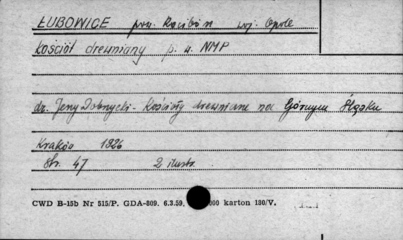 ŁUBOWICE pow. Racibórz woj. Opole
Kościół drewniany p. w. NMP
dr. Jerzy Dobrzycki - Kościoły drewniane na Górnym Śląsku
Kraków 1926
Str. 47 2 ilustr.
CWD B-15b Nr 515/P. GDA-809. 6.3.59. 000 karton 180/V.